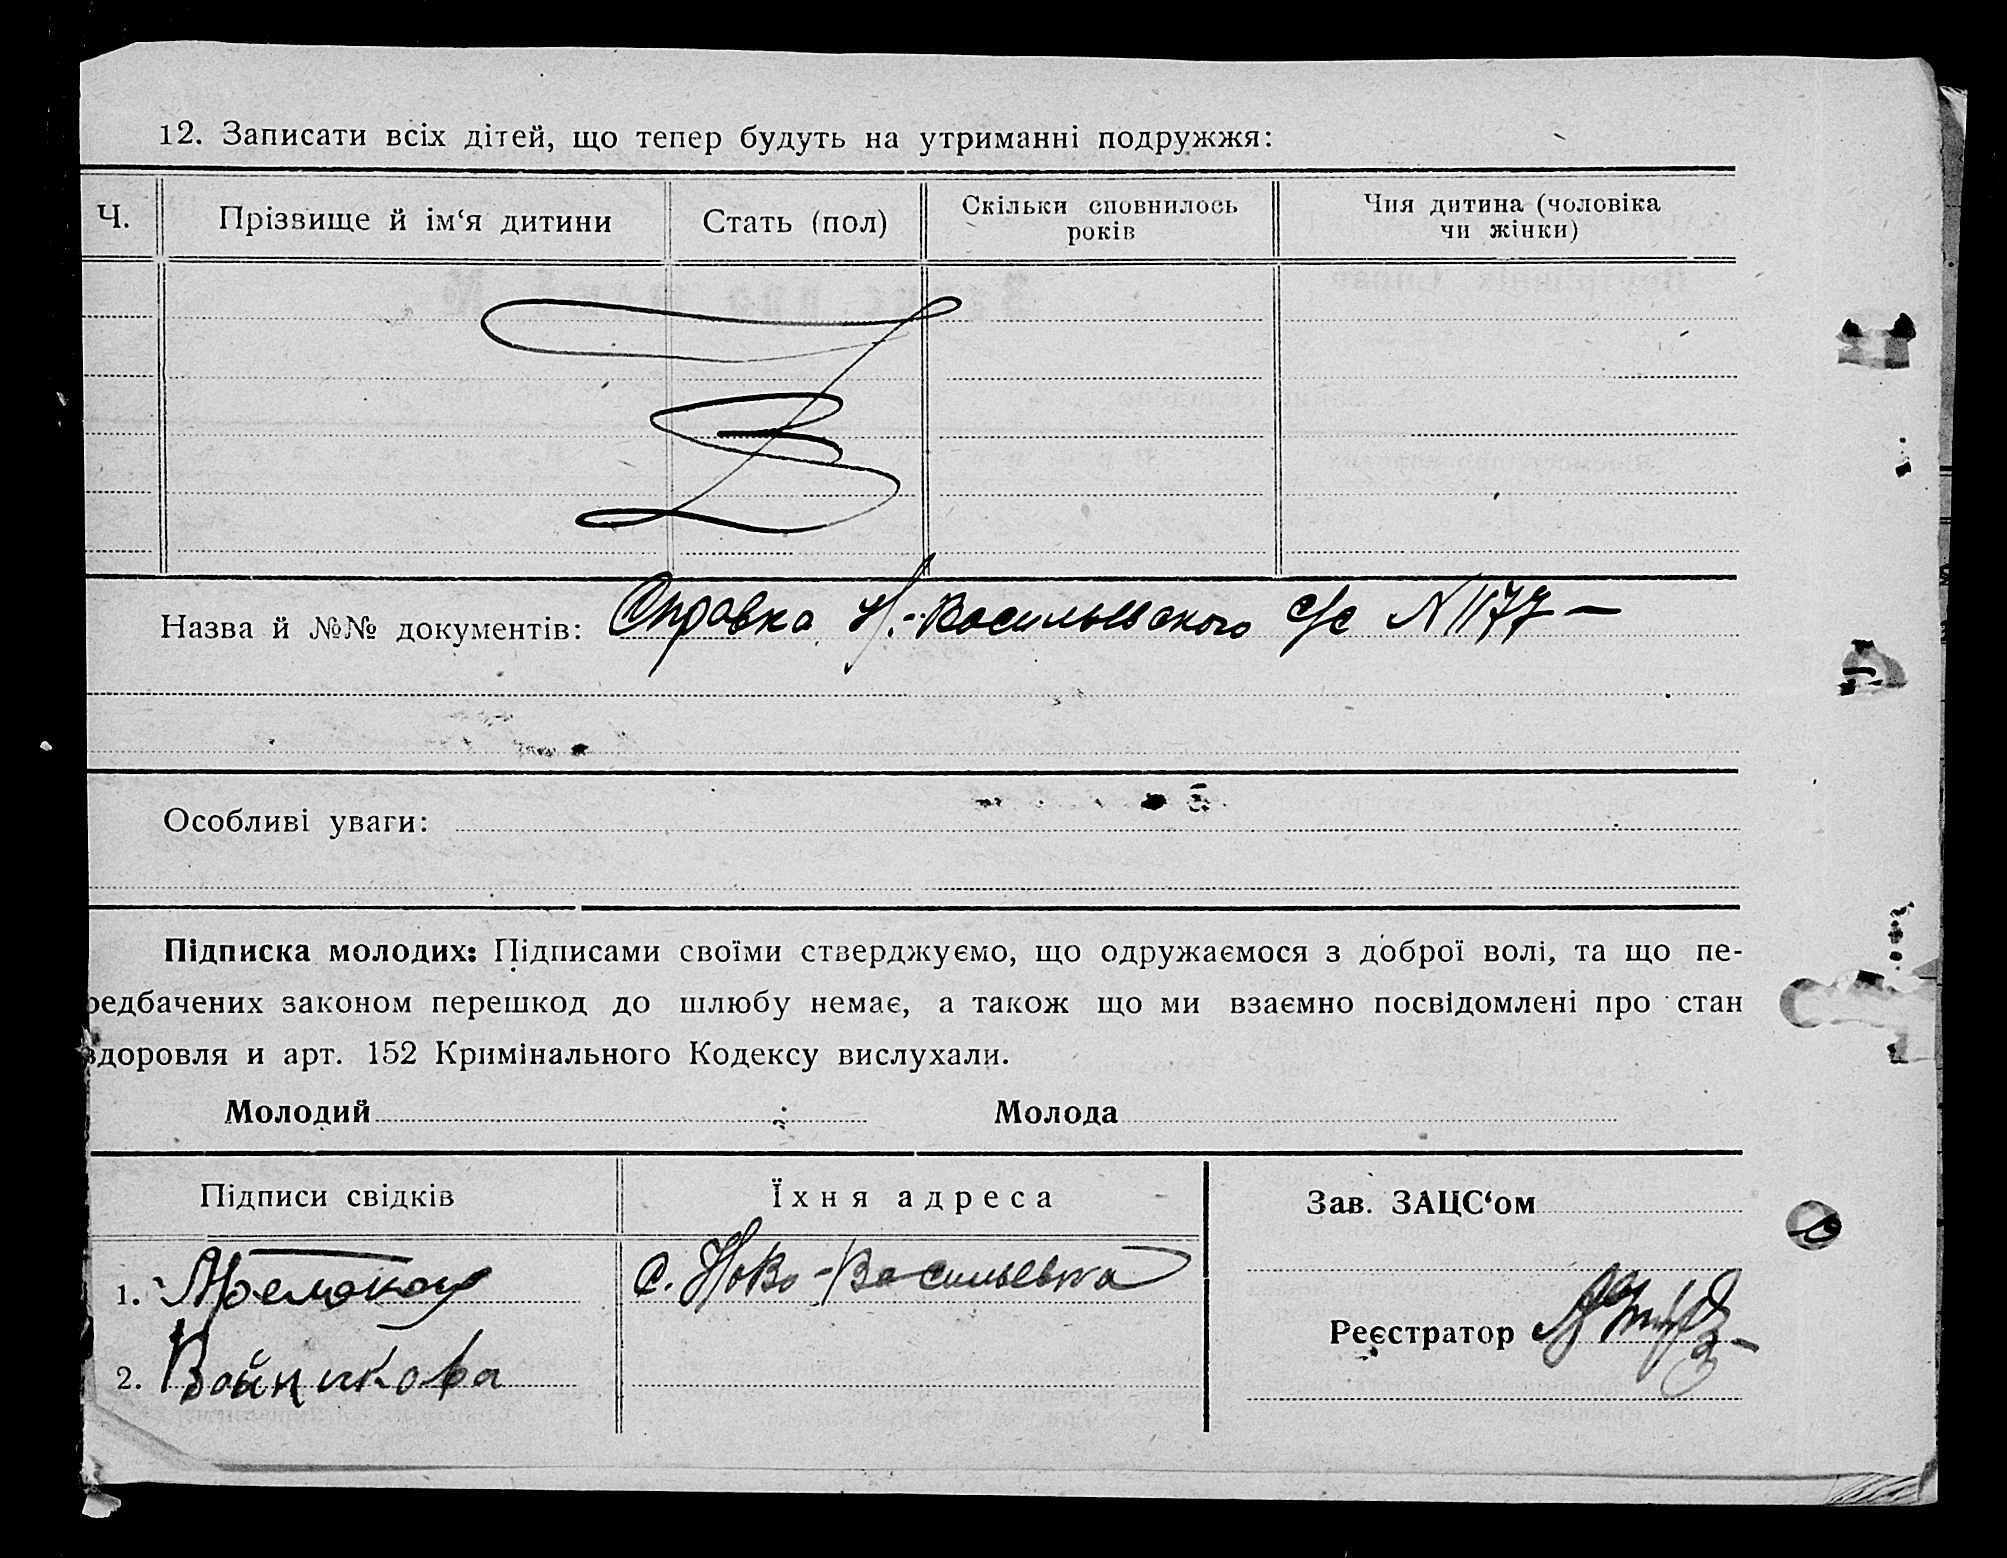 12. Записати всіх дітей, що тепер будуть на утриманні подружжя:
Ч. Прізвище й ім‘я дитини Стать (пол) Скільки сповнилось років Чия дитина (чоловіка чи жінки)
Назва й №№ документів: Справка Н.-Васильевского с/с N 1177 —
Особливі уваги:
Підписка молодих: Підписами своїми стверджуємо, що одружаємося з доброї волі, та що пе-
редбачених законом перешкод до шлюбу немає, а також що ми взаємно посвідомлені про стан
здоровля и арт. 152 Кримінального Кодексу вислухали.
Молодий Молода
Підписи свідків Їхня адреса Зав. ЗАЦС‘ом
1. с. Ново-Васильевка
Реєстратор
2. Войникова